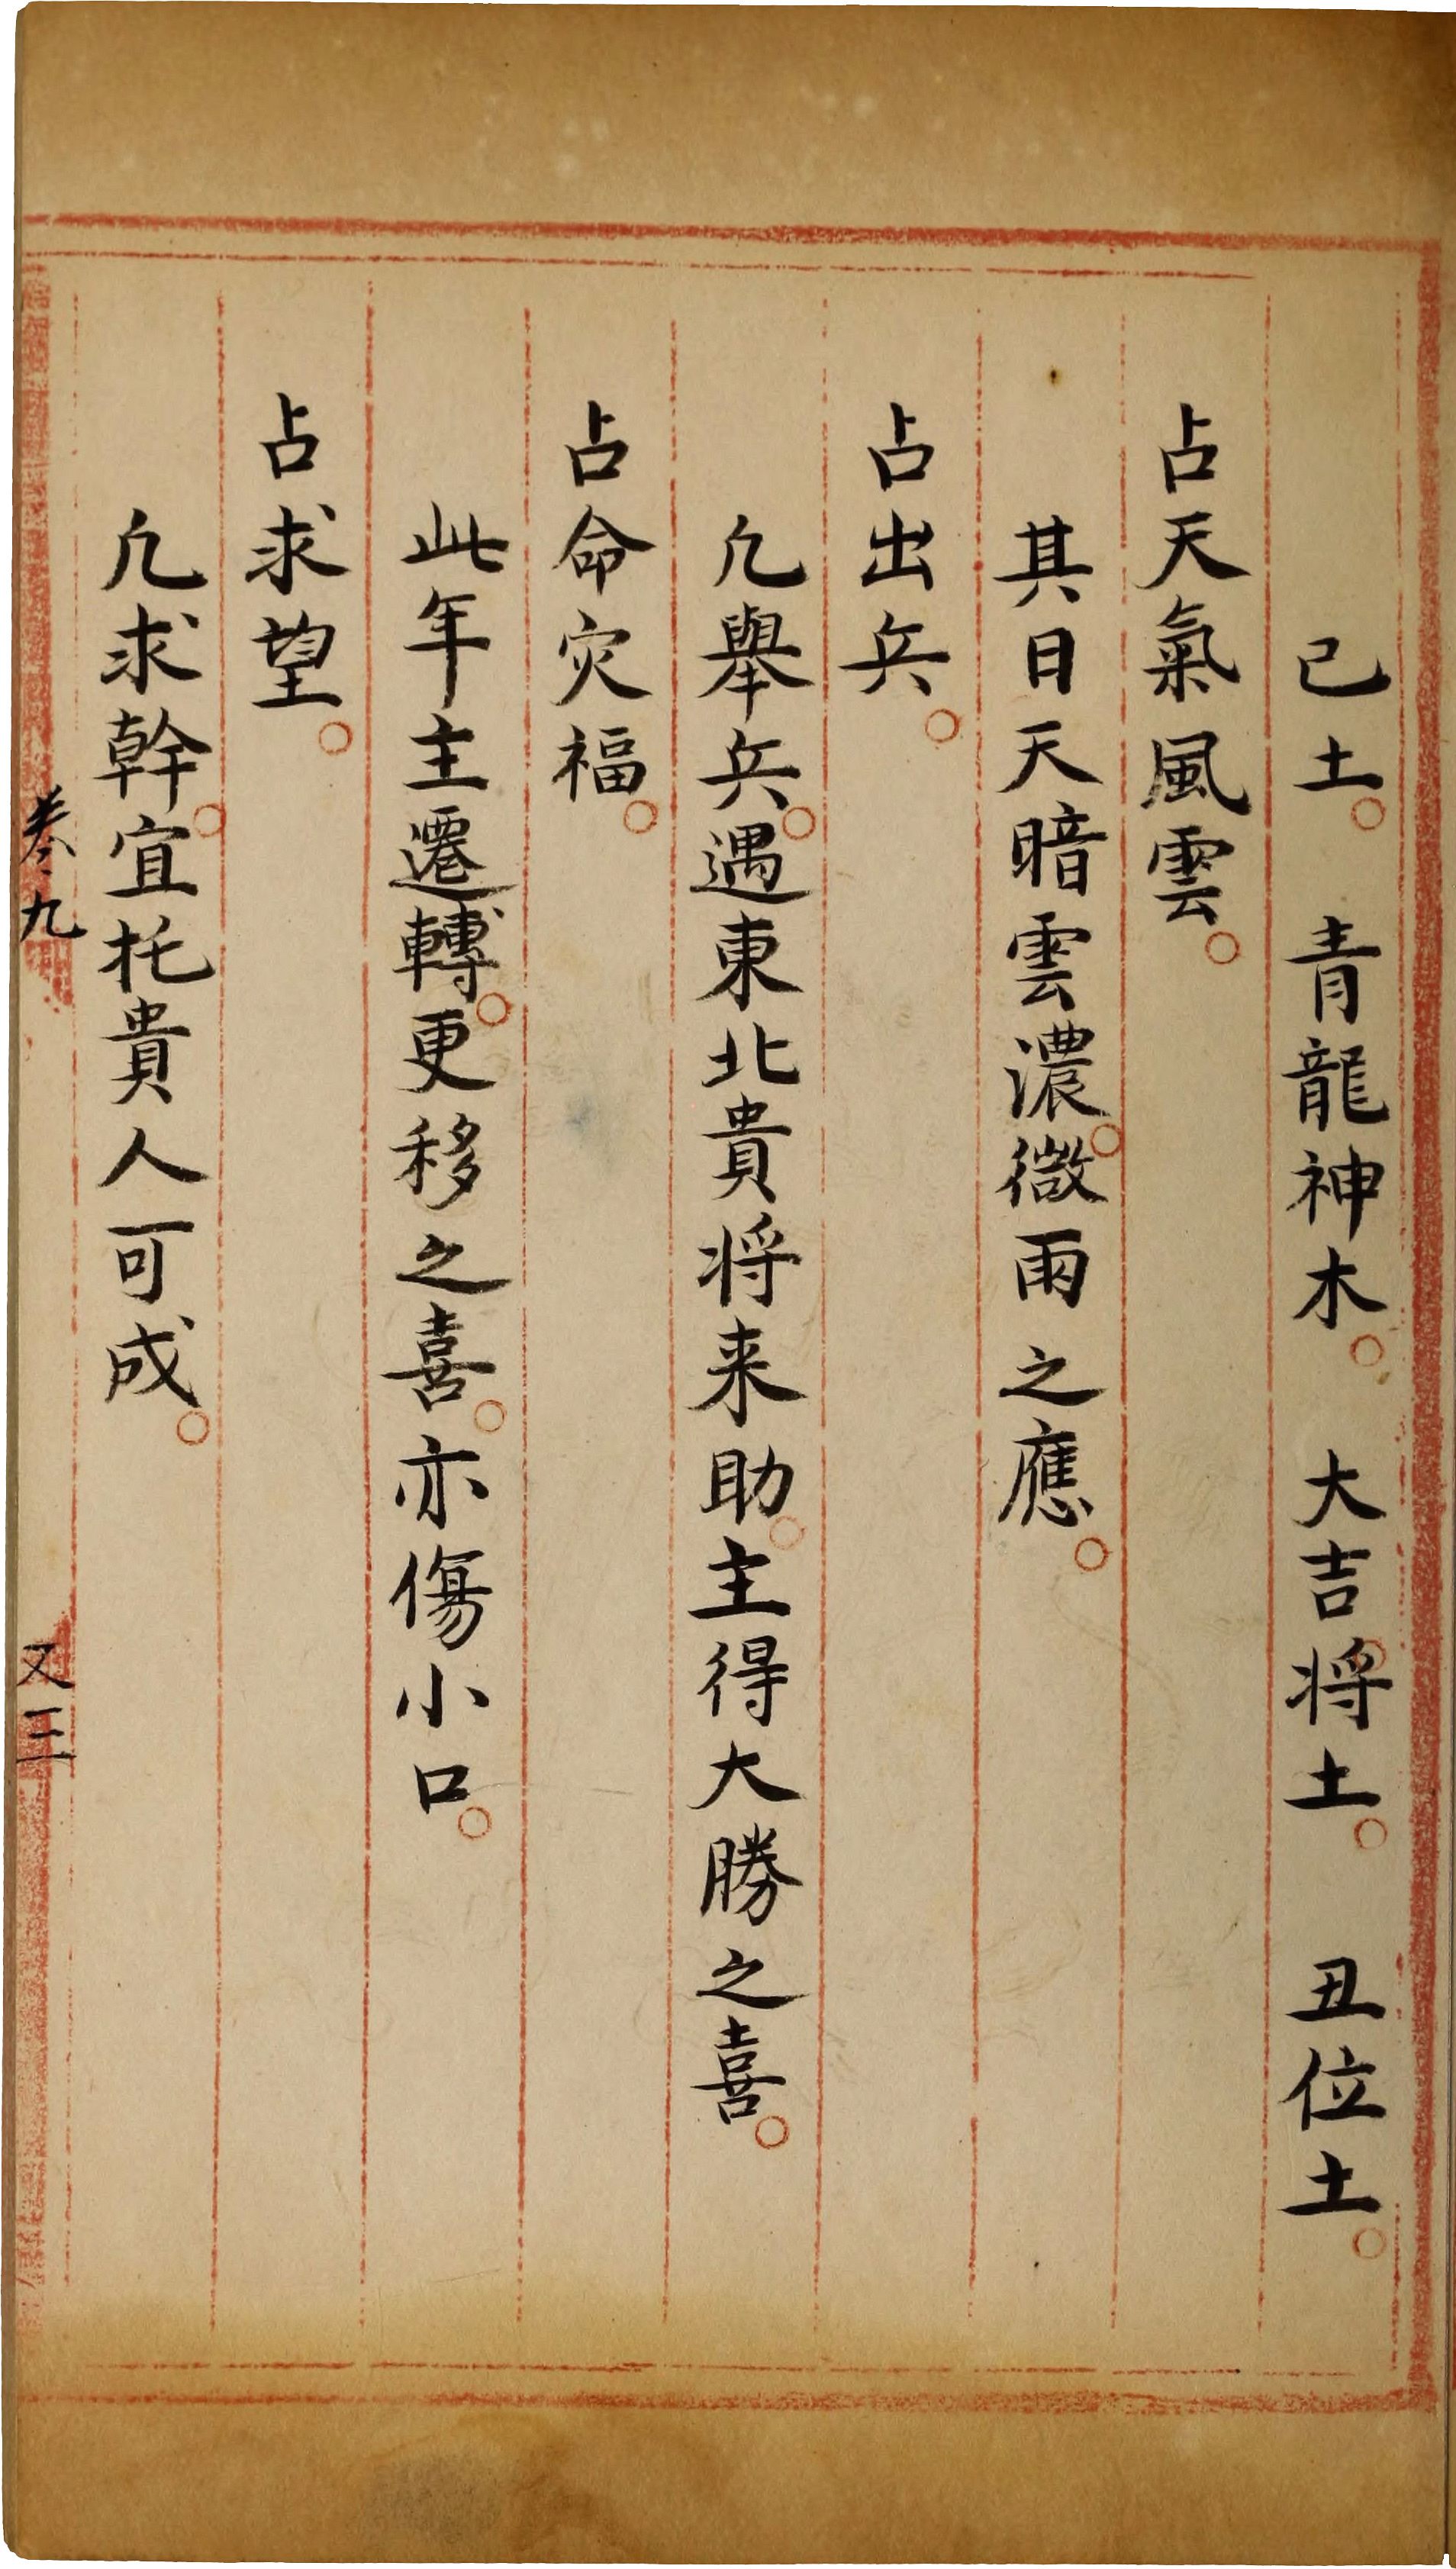 己土。　青龍神木。　大吉將土。　丑位土。
占天氣風雲。
其日天暗雲濃。微雨之應。
占出兵。
凢舉兵。遇東北貴將来助。主得大勝之喜。
占命灾福。
此年主遷轉。更移之喜。亦傷小口。
占求望。
凢求幹。宜托貴人可成。
卷九
又三